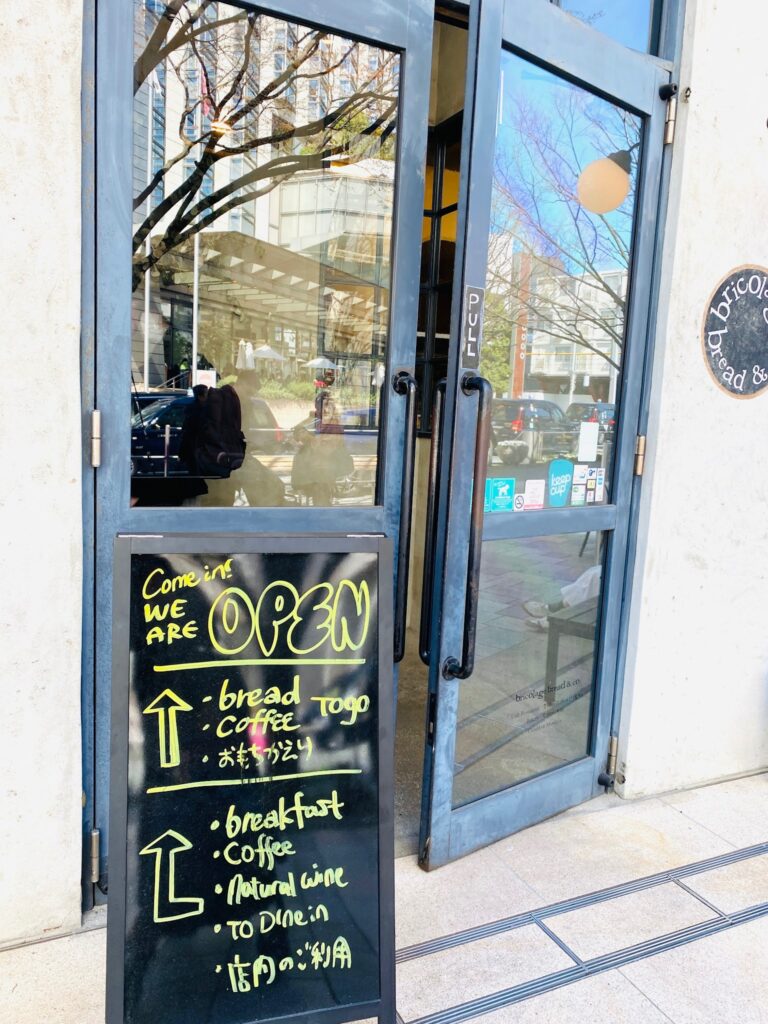 Come in!
WE
ARE
OPEN
・bread
・COFFEE
TOGO
・おもちかえり
・breakfast
・Coffee
・Natural wine
・TO Dine in
・店内のご利用
PULL
keep
cup
bricolage bread & co
bricola
bread &